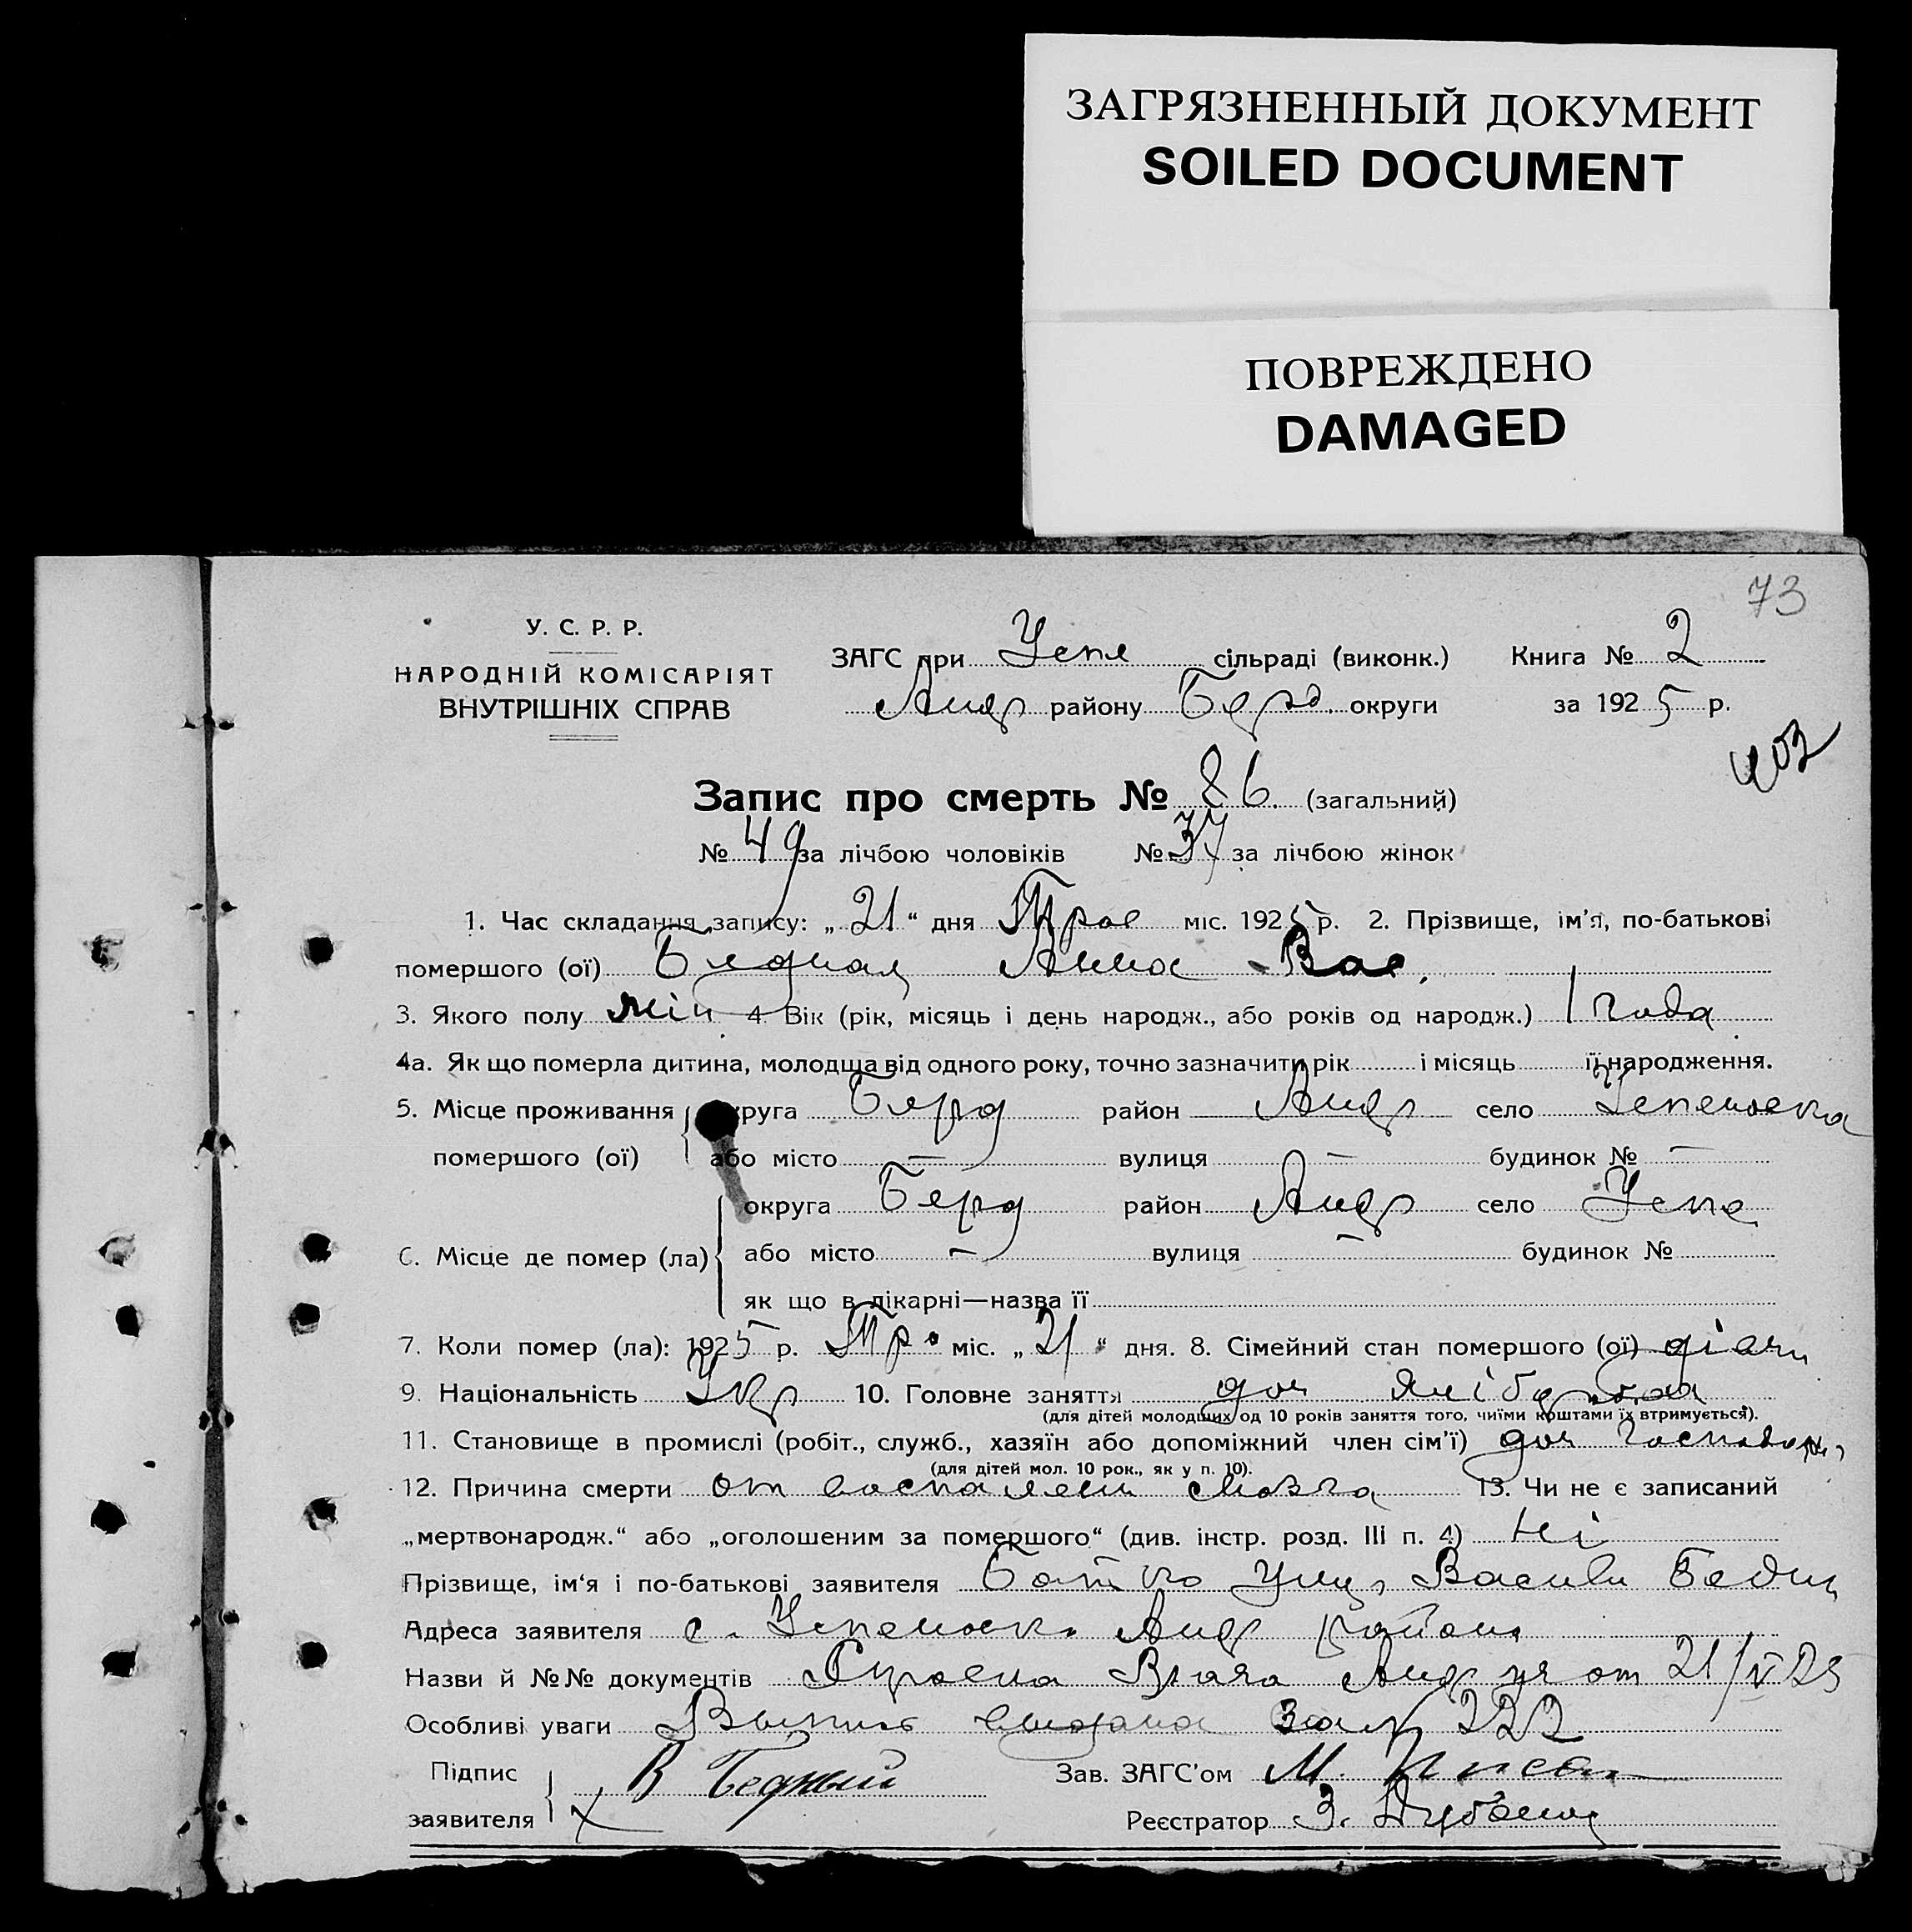 ЗАГРЯЗНЕННЫЙ ДОКУМЕНТ
SOILED DOCUMENT
ПОВРЕЖДЕНО
DAMAGED
73
У. С. Р. Р.
НАРОДНІЙ КОМІСАРІЯТ
ВНУТРІШНІХ СПРАВ
ЗАГС при Успе сільраді (виконк.) Книга № 2
Андр району Берд. округи за 1925 р.
403
Запис про смерть № 86. (загальний)
№ 49 за лічбою чоловіків № 37 за лічбою жінок
1. Час складання запису: „21“ дня Трав міс. 1925 р. 2. Прізвище, ім'я, по-батькові
помершого (ої) Бедная Анна Вас.
3. Якого полу жін 4 Вік (рік, місяць і день народж., або років од народж.) 1 года
4а. Як що померла дитина, молодща від одного року, точно зазначити рік і місяць її народження.
5. Місце проживання округа Берд район Андр село Успеновка
помершого (ої) або місто — вулиця — будинок № —
округа Берд район Андр село Успе
6. Місце де помер (ла) або місто — вулиця — будинок №
як що в лікарні—назва її
7. Коли помер (ла): 1925 р. Тра міс. „21“ дня. 8. Сімейний стан помершого (ої) дівч
9. Національність Укр 10. Головне заняття доч хлібороба
(для дітей молодших од 10 років заняття того, чиїми коштами їх втримується).
11. Становище в промислі (робіт., служб., хазяїн або допоміжний член сім'ї) доч
(для дітей мол. 10 рок., як у п. 10).
12. Причина смерти от воспалени мозга 13. Чи не є записаний
„мертвонародж.“ або „оголошеним за помершого“ (див. інстр. розд. III п. 4) Ні
Прізвище, ім'я і по-батькові заявителя Батько Василь Бедны
Адреса заявителя с. Успеновк Андр район
Назви й №№ документів Справка Врача Андр от 21/V 25
Особливі уваги Выпись выдана за № 222
Підпис В Бедный Зав. ЗАГС'ом М.
заявителя Реєстратор З.